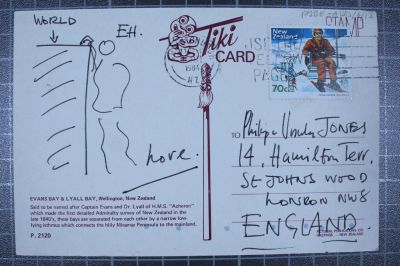 WORLD
EH.
Love.
Tiki
CARD
STAMP
New
Zealand
70c
TO
Philip & Ursula JONES
14, Hamilton Terr.
ST JOHNS WOOD
LONDON NW8
ENGLAND.
EVANS BAY & LYALL BAY, Wellington, New Zealand
Said to be named after Captain Evans and Dr. Lyall of H.M.S. "Acheron"
which made the first detailed Admiralty survey of New Zealand in the
late 1840's, these bays are separated from each other by a narrow low-
lying isthmus which connects the hilly Miramar Peninsula to the mainland.
P. 2120